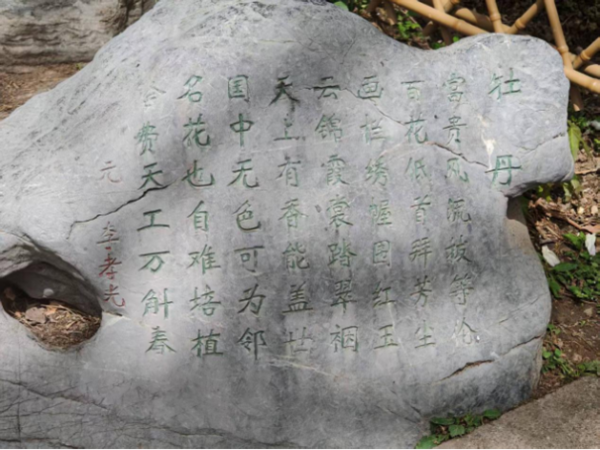 牡丹
富贵风流拔等伦
百花低首拜芳尘
画栏绣幄围红玉
云锦霞裳踏翠裀
天上有香能盖世
国中无色可为邻
名花也自难培植
合费天工万斛春
元 李孝光